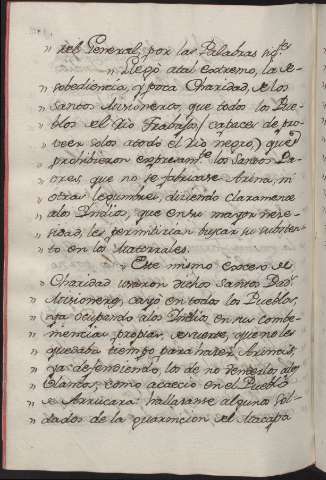 „ del General, por las Palabras sig.tes
„ Llegò atal extremo, la de-
„ sobediencia, y poca Charidad, de los
„ Santos Misioneros, que todos los Pue-
„ blos del Rio Trabajo/ capaces de pro-
„ veer solos atodo el Rio negro,) que
„ prohibieron expresam.te los Santos Pa-
„ dres, que no se fabricase Arina, ni
„ otras legumbres, diciendo claramente
„ alos Indios, que en su mayor nece-
„ sidad, les permitirian buscar su susten-
„ to en los Matorrales.
„ Este mismo exceso de
„ Charidad usaron dichos Santos Pad.s
„ Misioneros, en todos los Pueblos,
„ ya ocupando alos Indios en sus combe-
„ niencias propias, de suerte, que no les
„ quedaba tiempo para hacer Arinas,
„ ya defendiendo, los de no venderlas alos
„ Blancos, como acaeciò en el Pueblo
„ de : hallaranse algunos Sol-
„ dados de la guarnicion del Macapa